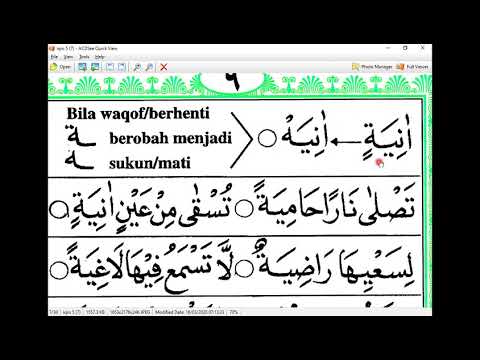 iqro 5 (7) - ACDSee Quick View
File View Tools Help
Open Photo Manager Full Viewer
٩
اٰنِيَةٍ ← اٰنِيَهْ ○
Bila waqof/berhenti
ـة berobah menjadi
ـه sukun/mati
تَصْلٰى نَارًا حَامِيَةً ○ تُسْقٰى مِنْ عَيْنٍ اٰنِيَةٍ ○
لِسَعْيِهَا رَاضِيَةٌ ○ لَّا تَسْمَعُ فِيْهَا لَاغِيَةً ○
iqro 5 (7) 1557.3 KB JPEG Modified Date: 16/03/2020 07:13:23 70%